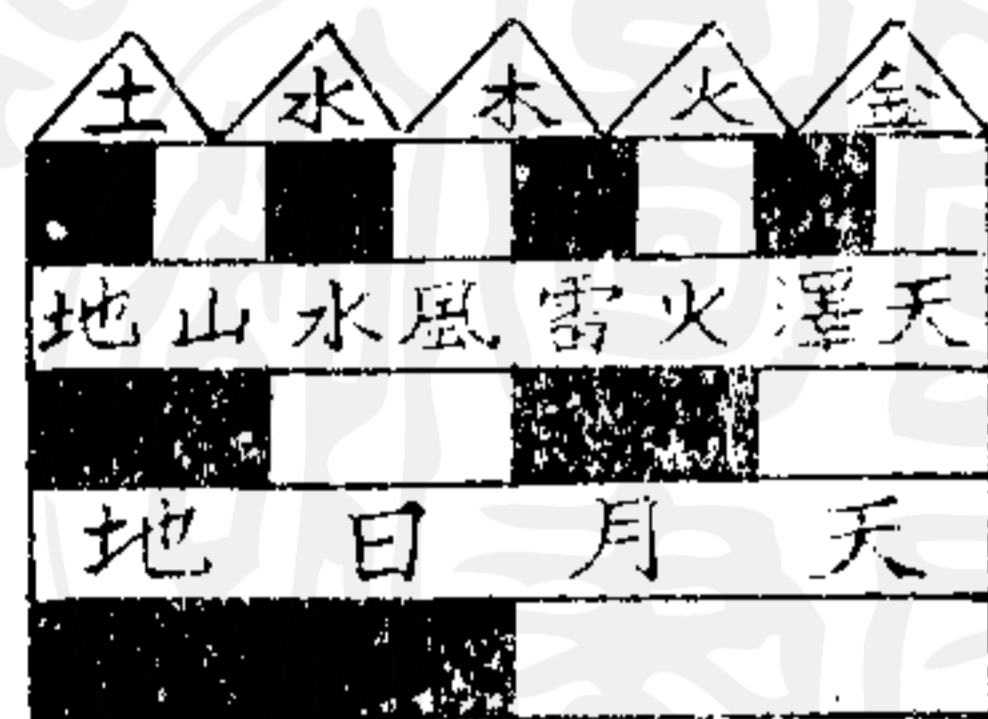 土 水 木 火 金
地 山 水 風 雷 火 澤 天
地 日 月 天